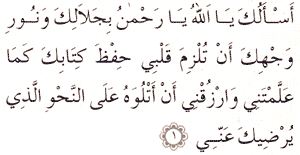 أَسْأَلُكَ يَا اَللهُ يَا رَحْمٰنُ بِجَلَالِكَ وَنُورِ
وَجْهِكَ أَنْ تُلْزِمَ قَلْبِي حِفْظَ كِتَابِكَ كَمَا
عَلَّمْتَنِي وَارْزُقْنِي أَنْ أَتْلُوَهُ عَلَى النَّحْوِ الَّذِي
يُرْضِيكَ عَنِّي ١